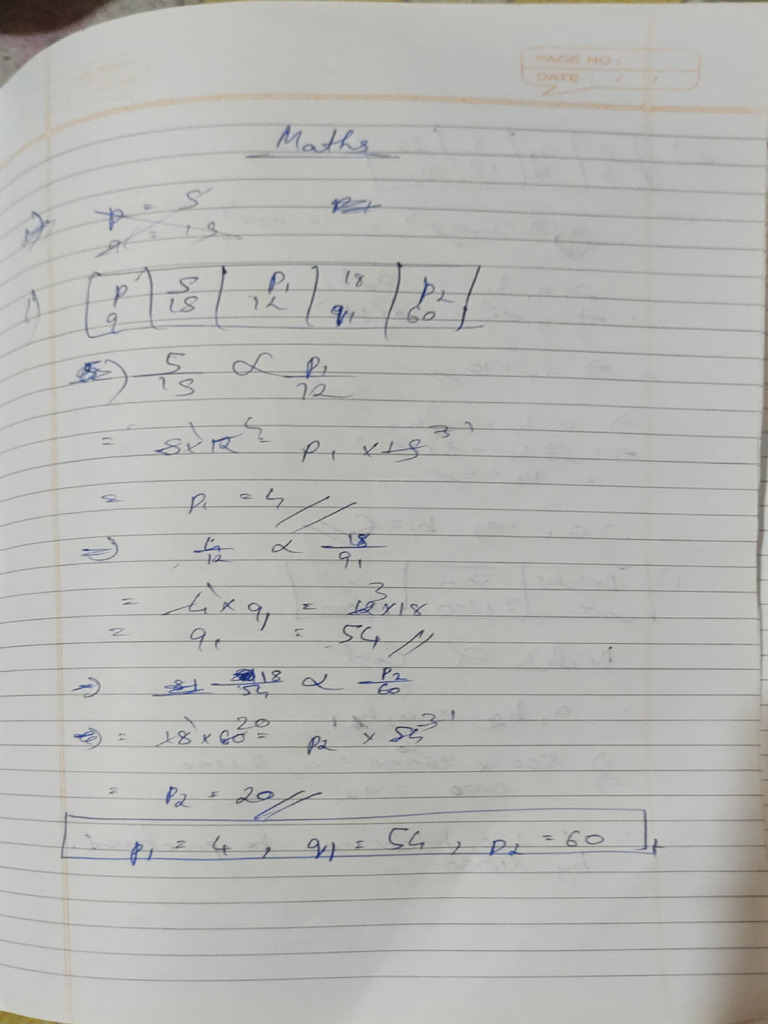 PAGE NO :
DATE : / /
Maths
p = 5
q = 15
1) p/q | 5/15 | p₁/12 | 18/q₁ | p₂/60
⇒ 5/15 ∝ p₁/12
= 5 × 12 4 = p₁ × 15 3 1
= p₁ = 4 //
⇒ 4/12 ∝ 18/q₁
= 4 × q₁ = 12 3 × 18
= q₁ = 54 //
⇒ 18/54 ∝ p₂/60
⇒ = 18 × 60 20 = p₂ × 54 3 1
= p₂ = 20 //
p₁ = 4 , q₁ = 54 , p₂ = 60